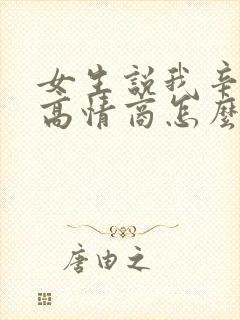 女生説我辛
高情商怎麽
唐由之